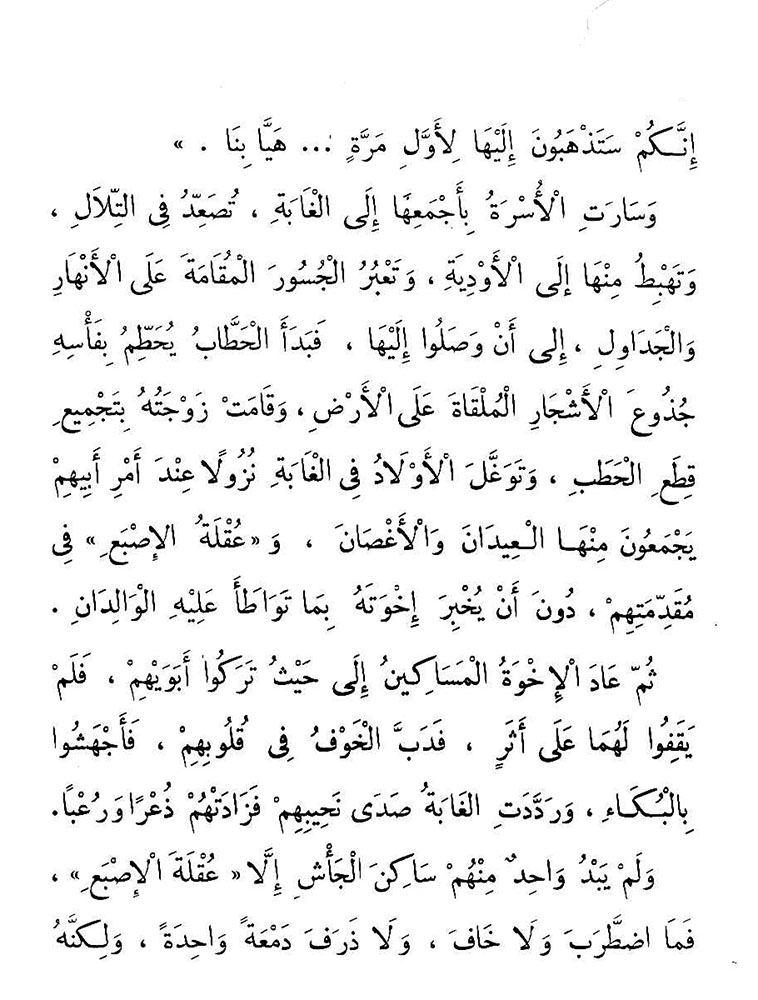 إِنَّكُمْ سَتَذْهَبُونَ إِلَيْهَا لِأَوَّلِ مَرَّةٍ ... هَيَّا بِنَا . »
وَسَارَتِ الْأُسْرَةُ بِأَجْمَعِهَا إِلَى الْغَابَةِ ، تُصَعِّدُ فِى التِّلَالِ ،
وَتَهْبِطُ مِنْهَا إلَى الْأَوْدِيَةِ ، وَتَعْبُرُ الْجُسُورَ الْمُقَامَةَ عَلَى الْأَنْهَارِ
وَالْجَدَاوِلِ ، إِلى أَنْ وَصَلُوا إِلَيْهَا ، فَبَدَأَ الْحَطَّابُ يُحَطِّمُ بِفَأْسِهِ
جُذُوعَ الْأَشْجَارِ الْمُلْقَاةَ عَلَى الْأَرْضِ ، وَقَامَتْ زَوْجَتُهُ بِتَجْمِيعِ
قِطَعِ الْحَطَبِ ، وَتَوَغَّلَ الْأَوْلَادُ فِى الْغَابَةِ نُزُولًا عِنْدَ أَمْرِ أَبِيهِمْ
يَجْمَعُونَ مِنْهَا الْعِيدَانَ وَالْأَغْصَانَ ، وَ « عُقْلَةُ الإِصْبَعِ » فِى
مُقَدِّمَتِهِمْ ، دُونَ أَنْ يُخْبِرَ إِخْوَتَهُ بِمَا تَوَاطَأَ عَلَيْهِ الْوَالِدَانِ .
ثُمّ عَادَ الْإِخْوَةُ الْمَسَاكِينُ إِلَى حَيْثُ تَرَكُوا أَبَوَيْهِمْ ، فَلَمْ
يَقِفُوا لَهُمَا عَلَى أَثَرٍ ، فَدَبَّ الْخَوْفُ فِى قُلُوبِهِمْ ، فَأَجْهَشُوا
بِالْبُكَاءِ ، وَرَدَّدَتِ الغَابَةُ صَدَى نَحِيبِهِمْ فَزَادَتْهُمْ ذُعْرًا وَرُعْبًا.
وَلَمْ يَبْدُ وَاحِدٌ مِنْهُمْ سَاكِنَ الْجَأْشِ إِلَّا « عُقْلَةَ الْإِصْبَعِ » ،
فَمَا اضْطَرَبَ وَلَا خَافَ ، وَلَا ذَرَفَ دَمْعَةً وَاحِدَةً ، وَلٰكِنَّهُ